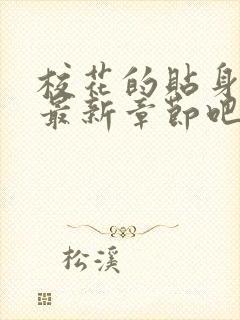 校花的貼身
最新章節吧
松溪